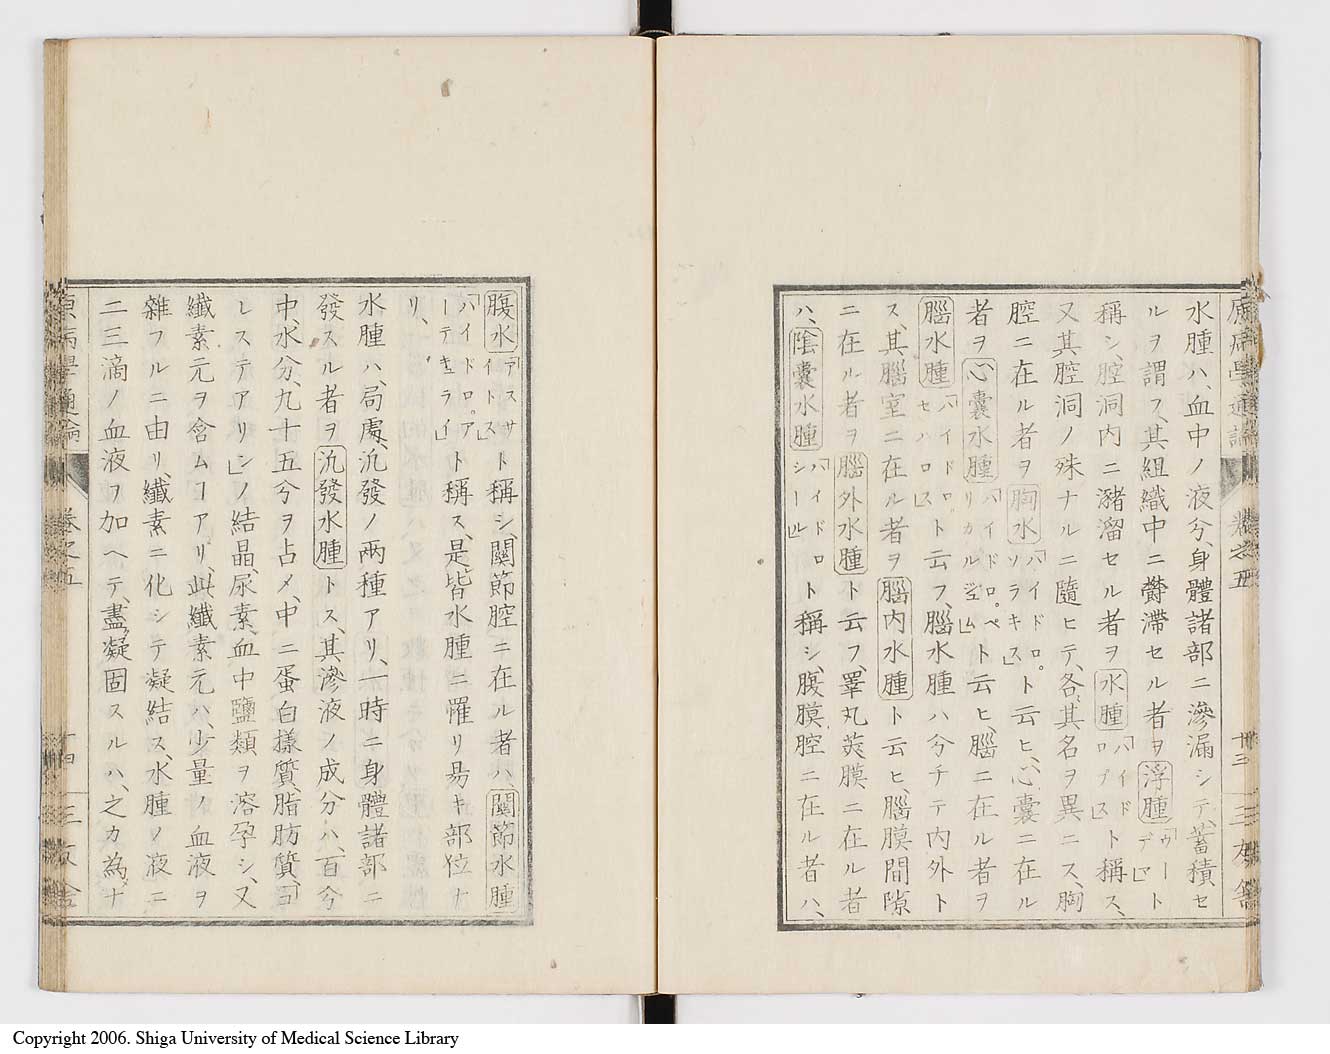 水腫ハ、血中ノ液兮、身體諸部ニ滲漏シテ、蓄積セ
ルヲ謂フ、其組織中ニ欝滯セル者ヲ浮腫「ウーデマ」ト
稱シ、腔洞内ニ瀦溜セル者ヲ水腫「ハイドロプス」ト稱ス、
又其腔洞ノ殊ナルニ隨ヒテ、各〻其名ヲ異ニス、胸
腔ニ在ル者ヲ胸水「ハイドロ。ソラキス」ト云ヒ、心囊ニ在ル
者ヲ心囊水腫「ハイドロ。ペリカルジユム」ト云ヒ、腦ニ在ル者ヲ
腦水腫「ハイドロセハロス」ト云フ、腦水腫ハ兮チテ内外ト
ス、其腦室ニ在ル者ヲ腦内水腫ト云ヒ、腦膜間隙
ニ在ル者ヲ腦外水腫ト云フ、睪丸莢膜ニ在ル者
ハ、陰囊水腫「ハイドロシール」ト稱シ、腹膜腔ニ在ル者ハ、
腹水「アスサイトス」ト稱シ、關節腔ニ在ル者ハ、關節水腫
「ハイドロ。アーテキュライ」ト稱ス、是皆水腫ニ罹リ昜キ部位ナ
リ、
水腫ハ、局處、汎發ノ兩種アリ、一時ニ身體諸部ニ
發スル者ヲ汎發水腫トス、其滲液ノ成分ハ、百兮
中、水分、九十五兮ヲ占メ、中ニ蛋白樣質、脂肪質、「コ
レステアリン」ノ結晶、尿素、血中鹽類ヲ溶孕シ、又
纖素元ヲ含ムコアリ、此纖素元ハ、少量ノ血液ヲ
雜フルニ由リ、纖素ニ化シテ凝結ス、水腫ノ液ニ
二三滴ノ血液ヲ加ヘテ、盡〻凝固スルハ、之カ為ナ
原病學通論
卷之五
十四
三友舍